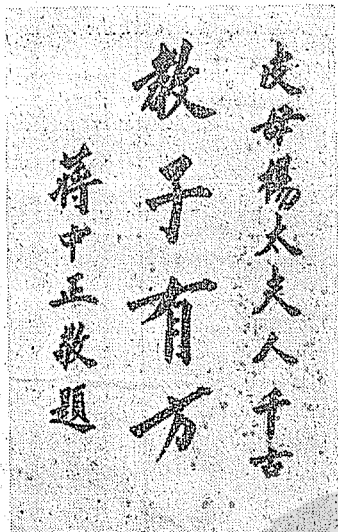 皮母楊太夫人千古
教子有方
蔣中正敬題